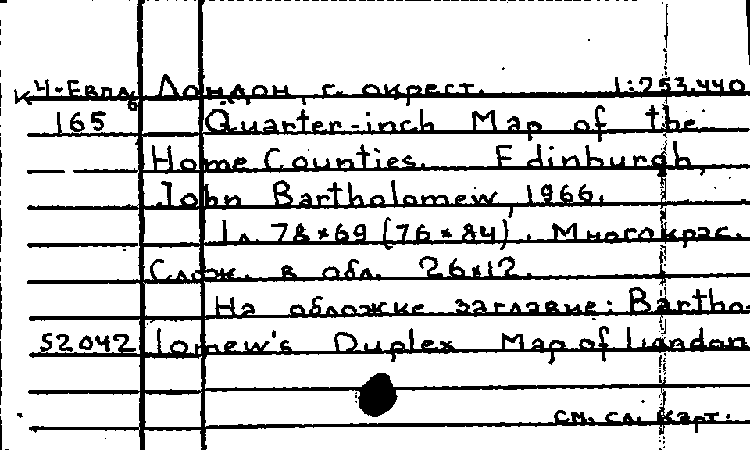 К 4-Евпд Лондон, г. окрест. 1:253.440
165 Quarter-inch Map of the
Home Counties. Edinburgh,
John Bartholomew, 1966.
1 л. 78×69 (76×84). Многокрас.
Слож. в обл. 26×12.
На обложке заглавие: Bartho-
52042 lomew's Duplex Map of London
см. сл. карт.